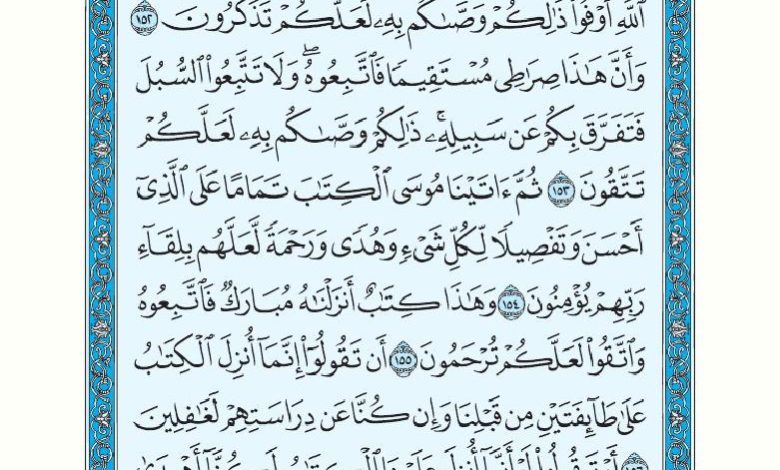 اللَّهِ أَوْفُوا۟ ذَٰلِكُمْ وَصَّىٰكُم بِهِۦ لَعَلَّكُمْ تَذَكَّرُونَ ١٥٢
وَأَنَّ هَٰذَا صِرَٰطِى مُسْتَقِيمًا فَٱتَّبِعُوهُ ۖ وَلَا تَتَّبِعُوا۟ ٱلسُّبُلَ
فَتَفَرَّقَ بِكُمْ عَن سَبِيلِهِۦ ۚ ذَٰلِكُمْ وَصَّىٰكُم بِهِۦ لَعَلَّكُمْ
تَتَّقُونَ ١٥٣ ثُمَّ ءَاتَيْنَا مُوسَى ٱلْكِتَٰبَ تَمَامًا عَلَى ٱلَّذِىٓ
أَحْسَنَ وَتَفْصِيلًا لِّكُلِّ شَىْءٍ وَهُدًى وَرَحْمَةً لَّعَلَّهُم بِلِقَآءِ
رَبِّهِمْ يُؤْمِنُونَ ١٥٤ وَهَٰذَا كِتَٰبٌ أَنزَلْنَٰهُ مُبَارَكٌ فَٱتَّبِعُوهُ
وَٱتَّقُوا۟ لَعَلَّكُمْ تُرْحَمُونَ ١٥٥ أَن تَقُولُوٓا۟ إِنَّمَآ أُنزِلَ ٱلْكِتَٰبُ
عَلَىٰ طَآئِفَتَيْنِ مِن قَبْلِنَا وَإِن كُنَّا عَن دِرَاسَتِهِمْ لَغَٰفِلِينَ